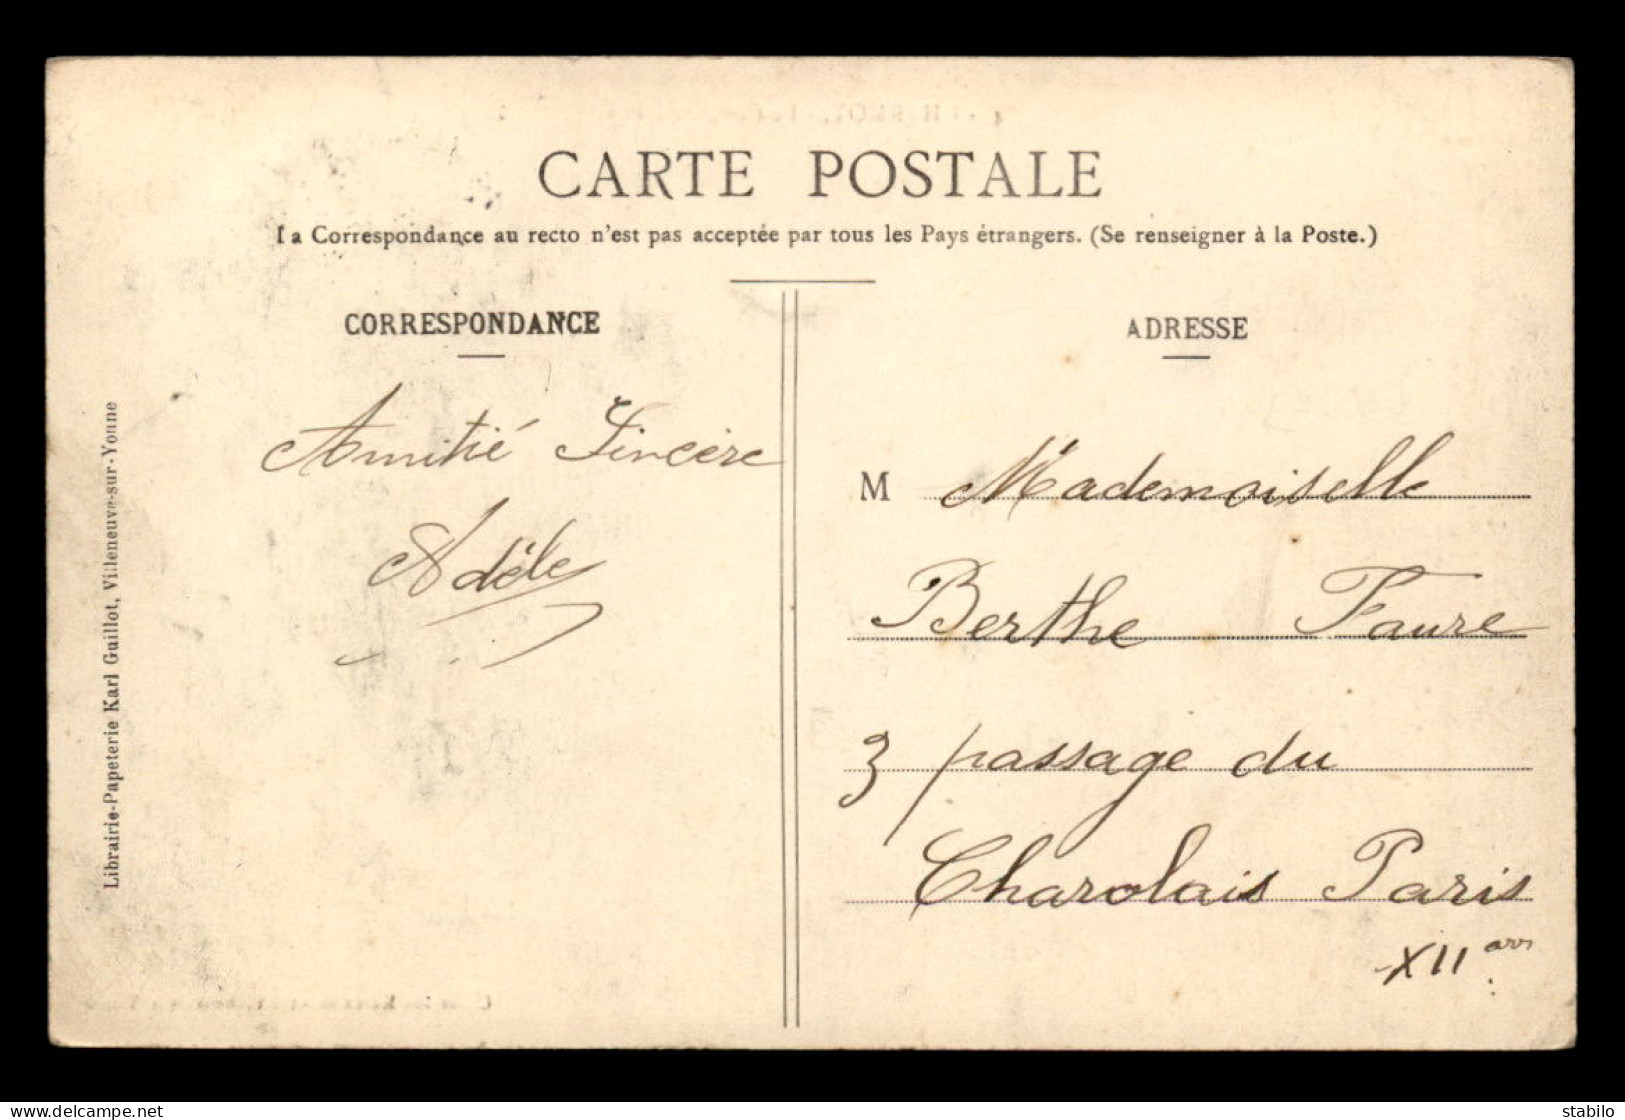 CARTE POSTALE
La Correspondance au recto n'est pas acceptée par tous les Pays étrangers. (Se renseigner à la Poste.)
CORRESPONDANCE
Amitié Sincère
Adèle
Librairie-Papeterie Karl Guillot, Villeneuve-sur-Yonne
ADRESSE
M Mademoiselle
Berthe Faure
3 passage du
Charolais Paris
XII arr.
delcampe.net
stabilo